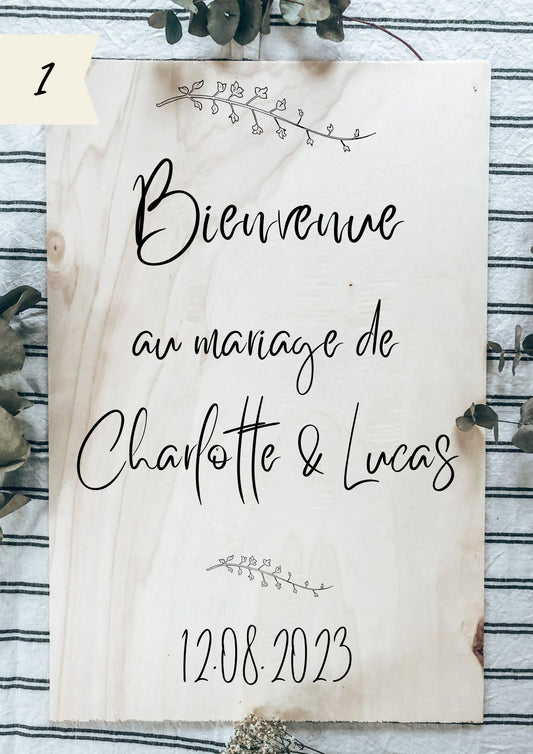 1
Bienvenue
au mariage de
Charlotte & Lucas
12.08.2023